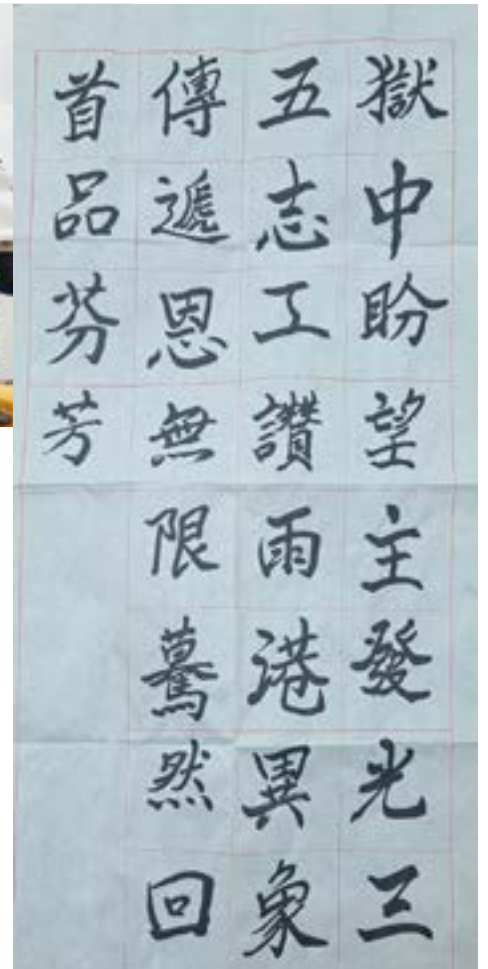 獄中盼望主發光三
五志工讚雨港異象
傳遞恩無限驀然回
首品芬芳